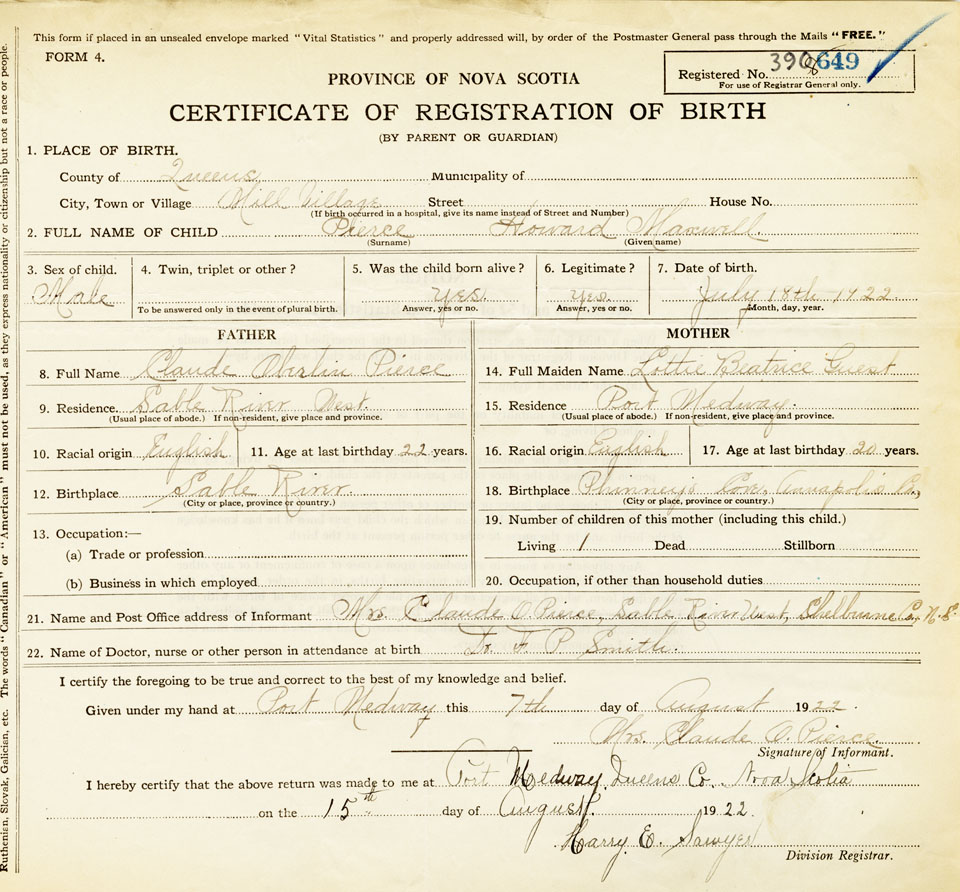 This form if placed in an unsealed envelope marked "Vital Statistics" and properly addressed will, by order of the Postmaster General pass through the Mails "FREE."
FORM 4.
Registered No. 390 649
For use of Registrar General only.
PROVINCE OF NOVA SCOTIA
CERTIFICATE OF REGISTRATION OF BIRTH
(BY PARENT OR GUARDIAN)
1. PLACE OF BIRTH.
County of Queens Municipality of
City, Town or Village Mill Village Street House No.
(If birth occurred in a hospital, give its name instead of Street and Number)
2. FULL NAME OF CHILD Pierce Howard Maxwell.
(Surname) (Given name)
3. Sex of child. Male
4. Twin, triplet or other?
To be answered only in the event of plural birth.
5. Was the child born alive? yes.
Answer, yes or no.
6. Legitimate? yes.
Answer, yes or no.
7. Date of birth.
July 18th 1922
Month, day, year.
FATHER
8. Full Name Claude Oberlin Pierce
9. Residence. Sable River West.
(Usual place of abode.) If non-resident, give place and province.
10. Racial origin English 11. Age at last birthday 22 years.
12. Birthplace Sable River.
(City or place, province or country.)
13. Occupation:—
(a) Trade or profession
(b) Business in which employed
MOTHER
14. Full Maiden Name Lottie Beatrice Guest
15. Residence Port Medway.
(Usual place of abode.) If non-resident, give place and province.
16. Racial origin English 17. Age at last birthday 20 years.
18. Birthplace Phinneys Cove, Annapolis Co,
(City or place, province or country.)
19. Number of children of this mother (including this child.)
Living 1 Dead Stillborn
20. Occupation, if other than household duties
21. Name and Post Office address of Informant Mrs. Claude O. Pierce, Sable River West, Shelburne Co. N.S.
22. Name of Doctor, nurse or other person in attendance at birth Dr. F. P. Smith.
I certify the foregoing to be true and correct to the best of my knowledge and belief.
Given under my hand at Port Medway this 7th day of August 1922.
Mrs. Claude O. Pierce.
Signature of Informant.
I hereby certify that the above return was made to me at Port Medway Queens Co. Nova Scotia
on the 15th day of August. 1922.
Harry E. Sawyer
Division Registrar.
Ruthenian, Slovak, Galician, etc. The words "Canadian" or "American" must not be used, as they express nationality or citizenship but not a race or people.